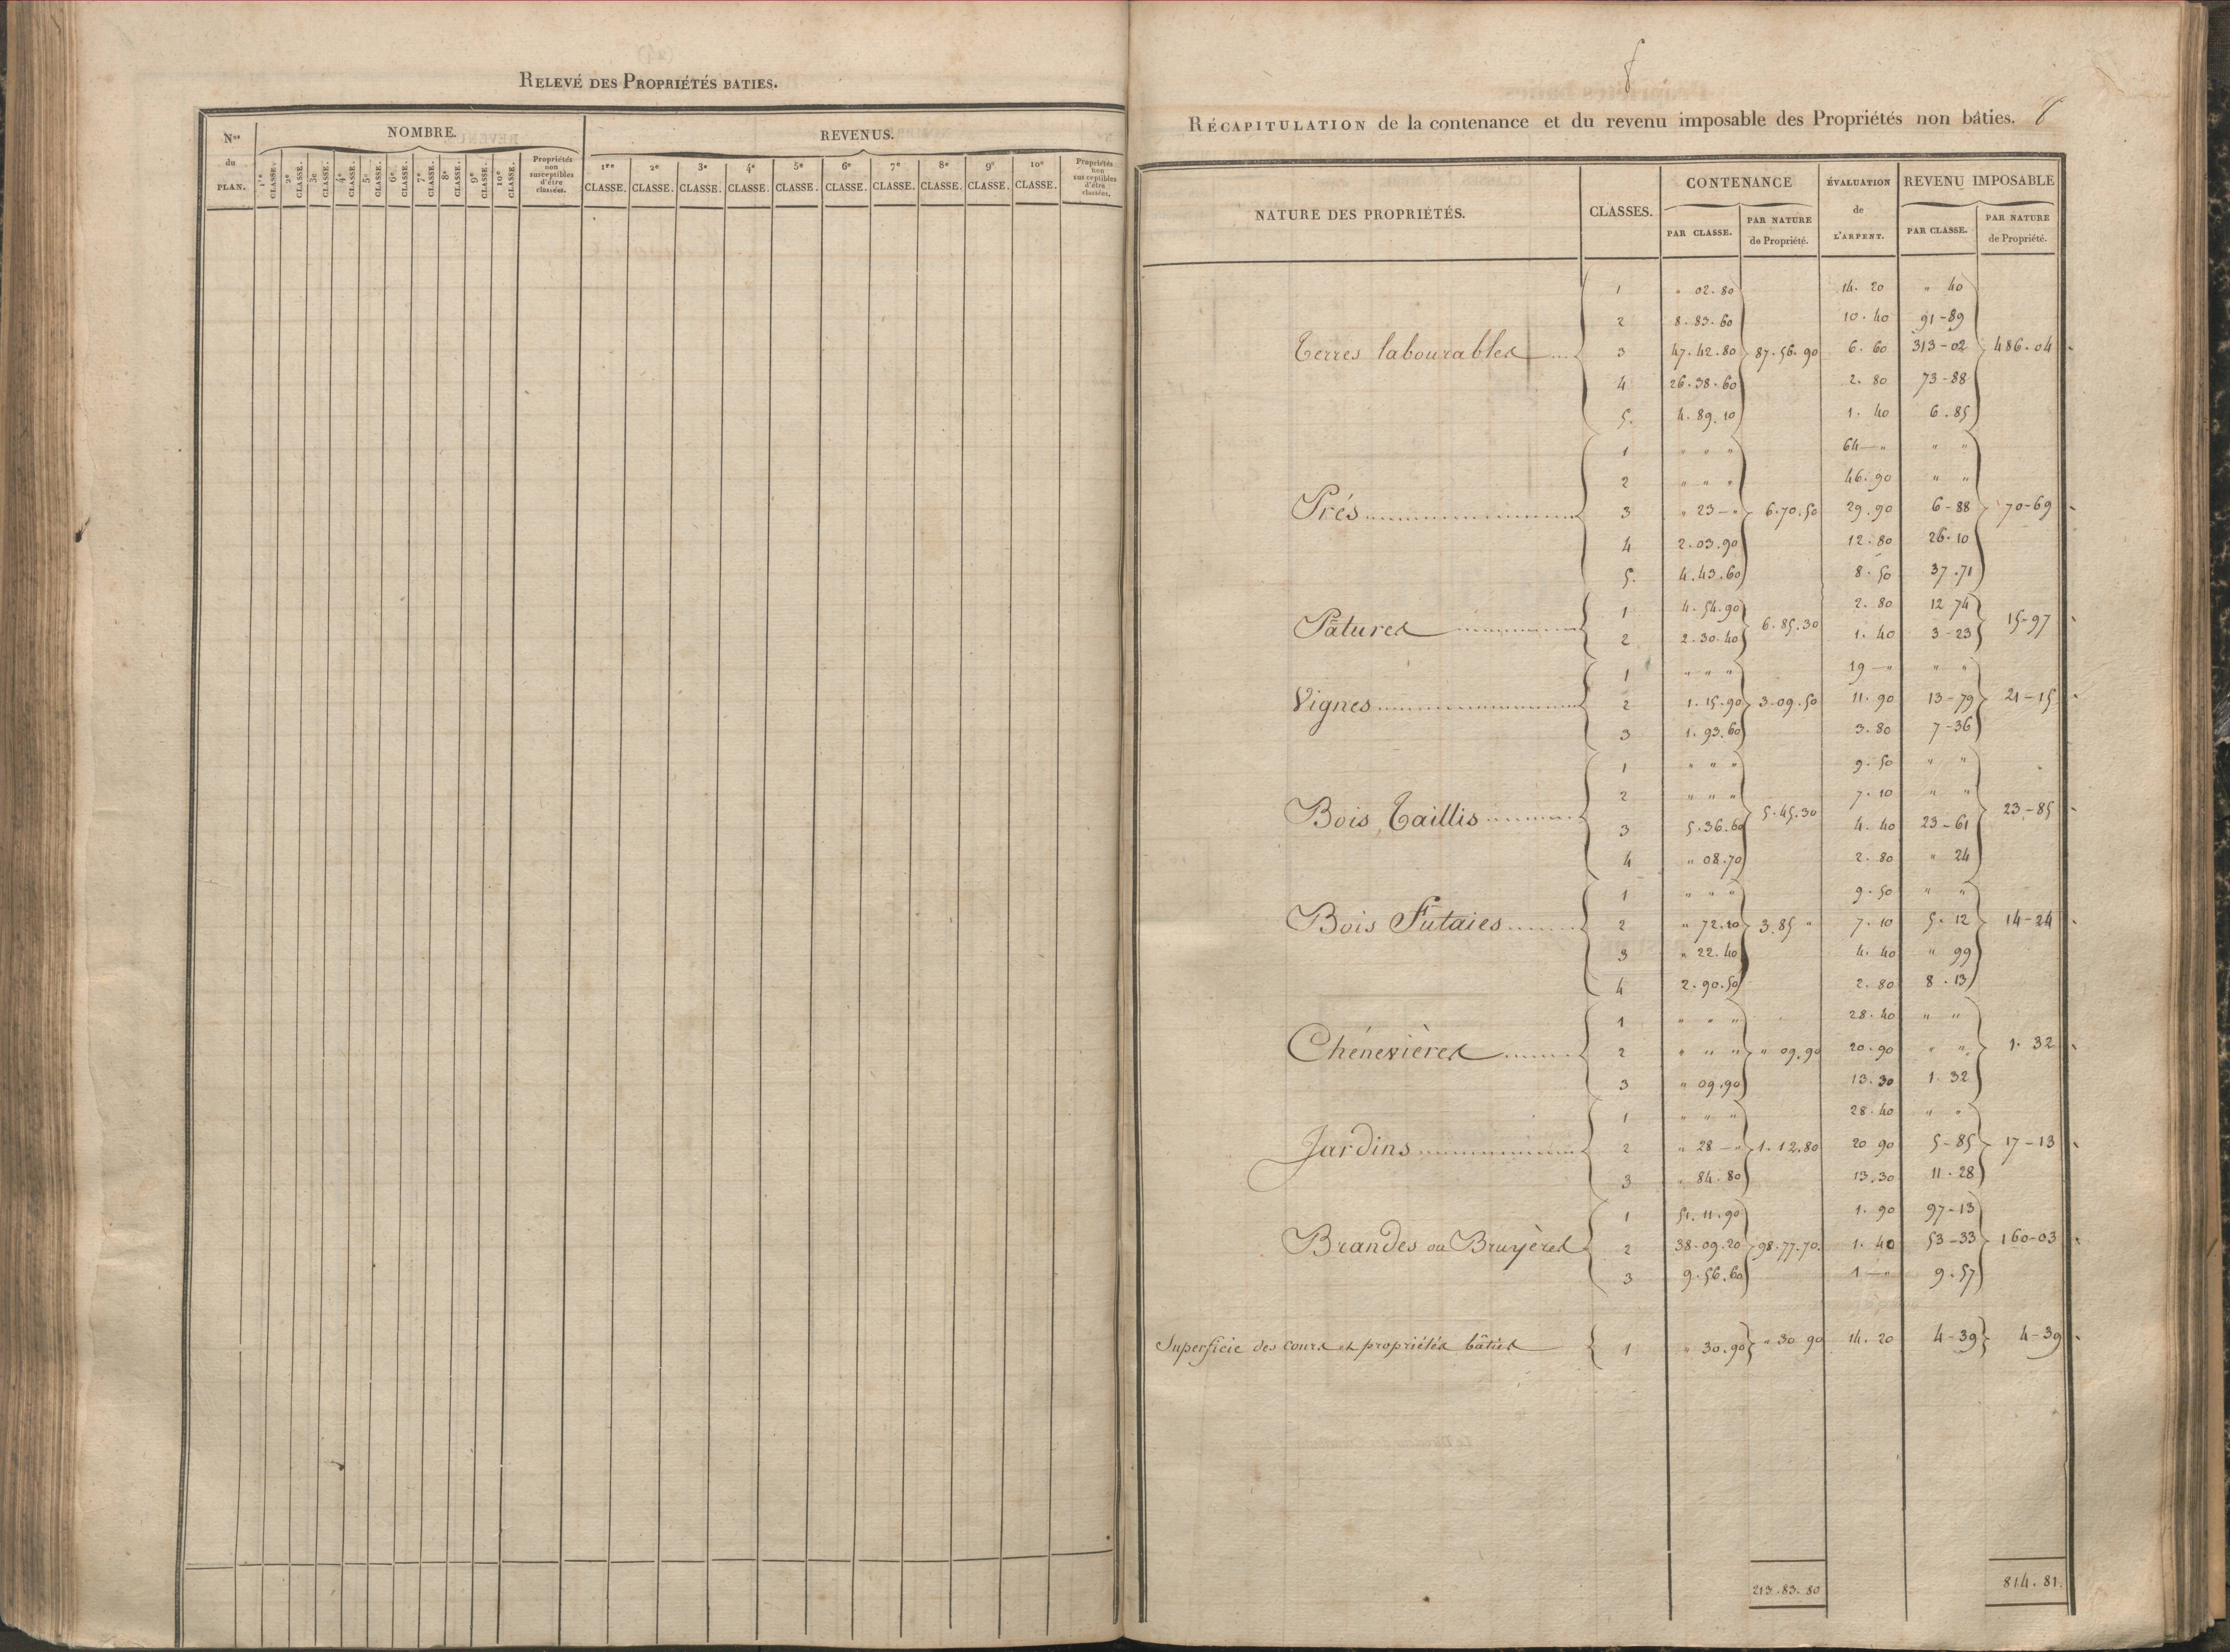 RELEVÉ DES PROPRIÉTÉS BATIES.
Nos du PLAN.
NOMBRE.
REVENUS.
1re CLASSE. 2e CLASSE. 3e CLASSE. 4e CLASSE. 5e CLASSE. 6e CLASSE. 7e CLASSE. 8e CLASSE. 9e CLASSE. 10e CLASSE. Propriétés non susceptibles d'être classées.
1re CLASSE. 2e CLASSE. 3e CLASSE. 4e CLASSE. 5e CLASSE. 6e CLASSE. 7e CLASSE. 8e CLASSE. 9e CLASSE. 10e CLASSE. Propriétés non susceptibles d'être classées.
8
RÉCAPITULATION de la contenance et du revenu imposable des Propriétés non bâties. 8
NATURE DES PROPRIÉTÉS. CLASSES. CONTENANCE ÉVALUATION de L'ARPENT. REVENU IMPOSABLE
PAR CLASSE. PAR NATURE de Propriété. PAR CLASSE. PAR NATURE de Propriété.
1 " 02.80 14.20 " 40
2 8.83.60 10.40 91-89
Terres labourables 3 47.42.80 87.56.90 6.60 313-02 486.04
4 26.38.60 2.80 73-88
5. 4.89.10 1.40 6.85
1 " " " 64-" " "
2 " " " 46.90 " "
Prés 3 " 23-" 6.70.50 29.90 6-88 70-69
4 2.03.90 12.80 26.10
5. 4.43.60 8.50 37.71
1 4.54.90 2.80 12 74
Pâtures 6.85.30 15-97
2 2.30.40 1.40 3-23
1 " " " 19-" " "
Vignes 2 1.15.90 3-09.50 11.90 13-79 21-15
3 1.93.60 3.80 7-36
1 " " " 9.50 " "
2 " " " 7.10 " "
Bois Taillis 5.45.30 23-85
3 5.36.60 4.40 23-61
4 " 08.70 2.80 " 24
1 " " " 9.50 " "
Bois Futaies 2 " 72.10 3.85 " 7.10 5.12 14-24
3 " 22.40 4.40 " 99
4 2.90.50 2.80 8.13
1 " " " 28.40 " "
Chénevières 2 " " " " 09.90 20.90 " " 1.32
3 " 09.90 13.30 1.32
1 " " " 28.40 " "
Jardins 2 " 28-" 1.12.80 20 90 5-85 17-13
3 " 84.80 13.30 11.28
1 51.11.90 1.90 97-13
Brandes ou Bruyères 2 38.09.20 98.77.70. 1.40 53-33 160-03
3 9.56.60 1-" 9.57
Superficie des cours et propriétés bâties 1 " 30.90 " 30 90 14.20 4-39 4-39
213.83.80 814.81.